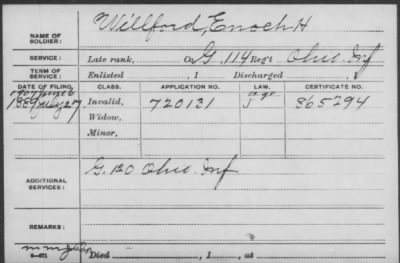 Willford, Enoch H
NAME OF SOLDIER:
SERVICE: Late rank, Co G. 114 Reg't Ohio Inf
TERM OF SERVICE: Enlisted , 1 Discharged , 1
DATE OF FILING. CLASS. APPLICATION NO. LAW. CERTIFICATE NO.
1889 July 27 Invalid, 720131 J 865294
Widow,
Minor,
ADDITIONAL SERVICES: G. 120 Ohio Inf
REMARKS:
Died , 1 , at